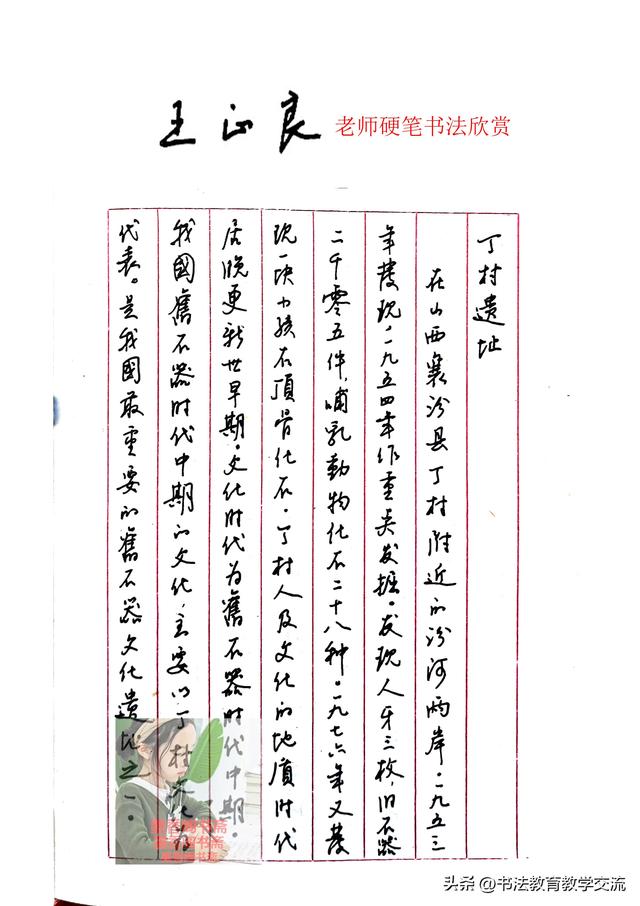 王正良 老师硬笔书法欣赏
丁村遗址
在山西襄汾县丁村附近的汾河两岸。一九五三
年发现。一九五四年作重点发掘。发现人牙三枚,旧石器
二千零五件,哺乳動物化石二十八种。一九七六年又發
现一块小孩右頂骨化石。丁村人及文化的地质时代
居晚更新世早期。文化时代为舊石器时代中期。
我國舊石器时代中期的文化,主要以丁村文化为
代表。是我國最重要的舊石器文化遗址之一。
头条 @书法教育教学交流